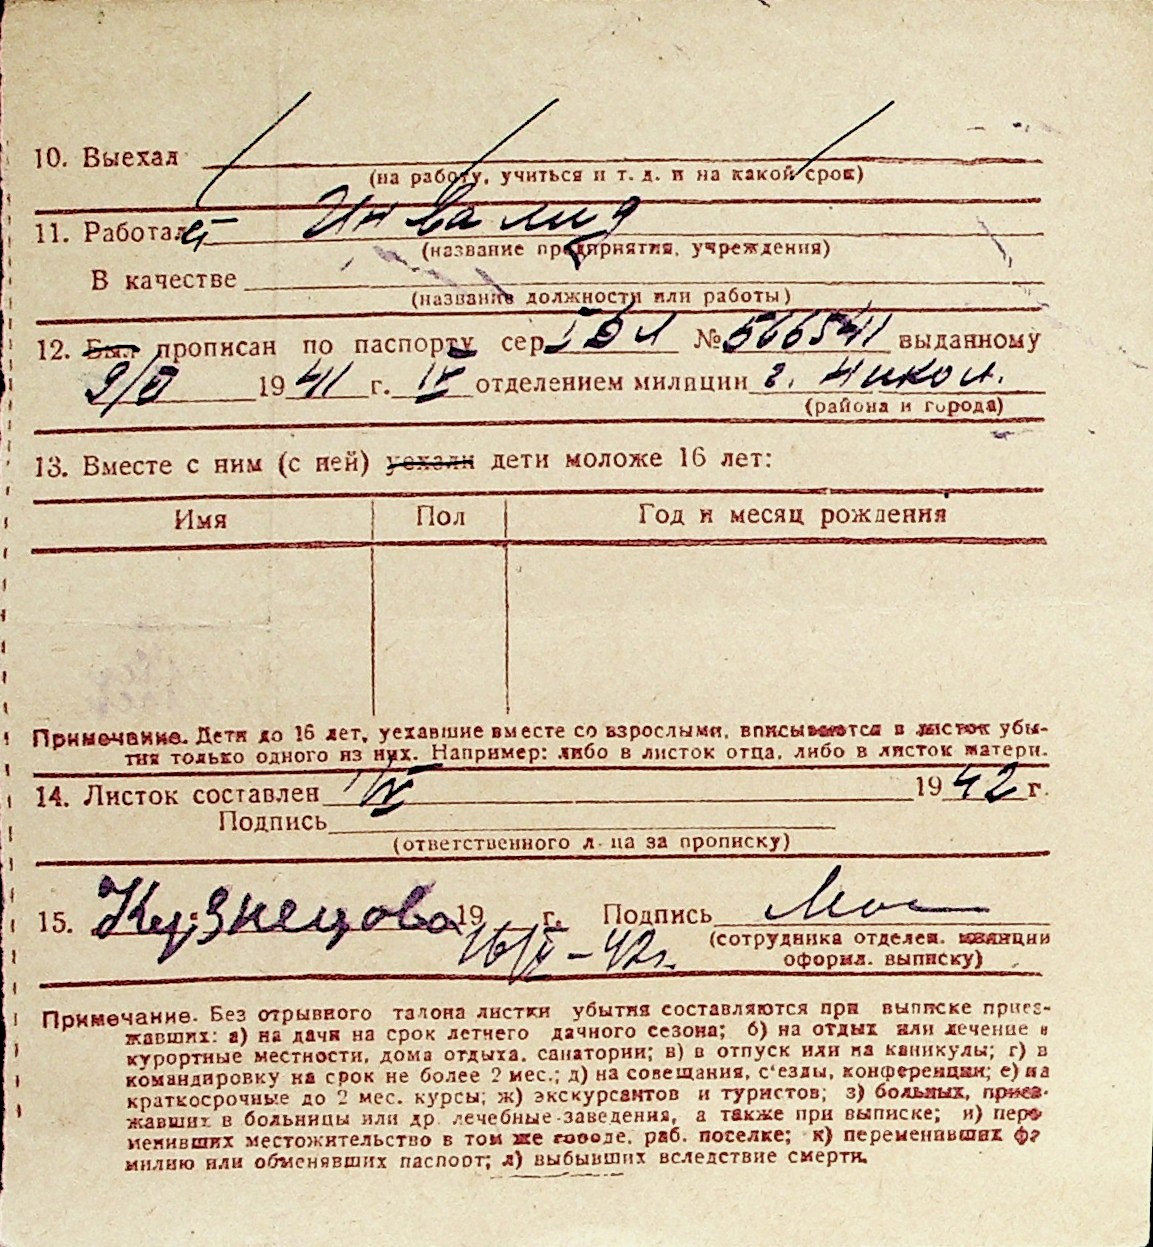 10. Выехал
(на работу, учиться и т. д. и на какой срок)
11. Работает Инвалид
(название предприятия, учреждения)
В качестве
(название должности или работы)
12. Был прописан по паспорту сер. № 566541 выданному
1941 г. IV отделением милиции г. Никол.
(района и города)
13. Вместе с ним (с ней) уехали дети моложе 16 лет:
Имя Пол Год и месяц рождения
Примечание. Дети до 16 лет, уехавшие вместе со взрослыми, вписываются в листок убы-
тия только одного из них. Например: либо в листок отца, либо в листок матери.
14. Листок составлен 1942 г.
Подпись
(ответственного л-ца за прописку)
15. Кузнецова 19 г. Подпись
16/IX-42г. (сотрудника отделен. милиции
оформл. выписку)
Примечание. Без отрывного талона листки убытия составляются при выписке приез-
жавших: а) на дачи на срок летнего дачного сезона; б) на отдых или лечение в
курортные местности, дома отдыха, санатории; в) в отпуск или на каникулы; г) в
командировку на срок не более 2 мес.; д) на совещания, с'езды, конференции; е) на
краткосрочные до 2 мес. курсы; ж) экскурсантов и туристов; з) больных, приез-
жавших в больницы или др. лечебные заведения, а также при выписке; и) пере
менивших местожительство в том же городе, раб. поселке; к) переменивших фа
милию или обменявших паспорт; л) выбывших вследствие смерти.